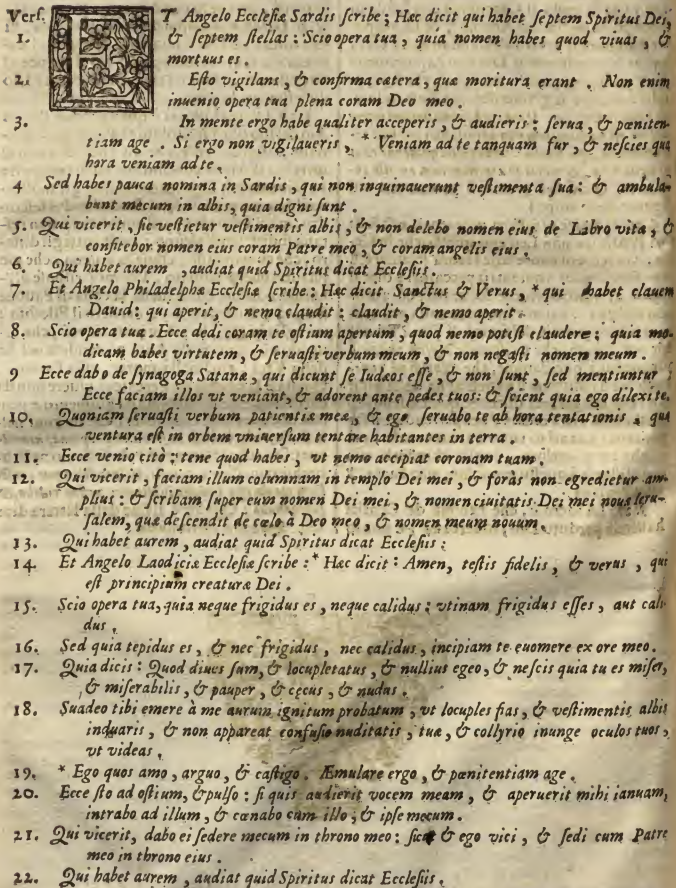 Vers. ET Angelo Ecclesiæ Sardis scribe; Hæc dicit qui habet septem Spiritus Dei,
1. & septem stellas: Scio opera tua, quia nomen habes quod viuas, &
mortuus es.
2. Esto vigilans, & confirma cætera, quæ moritura erant. Non enim
inuenio opera tua plena coram Deo meo.
3. In mente ergo habe qualiter acceperis, & audieris: serua, & pœniten-
tiam age. Si ergo non vigilaueris, * Veniam ad te tanquam fur, & nescies qua
hora veniam ad te.
4 Sed habes pauca nomina in Sardis, qui non inquinauerunt vestimenta sua: & ambula-
bunt mecum in albis, quia digni sunt.
5. Qui vicerit, sic vestietur vestimentis albis, & non delebo nomen eius de Libro vitæ, &
confitebor nomen eius coram Patre meo, & coram angelis eius.
6. Qui habet aurem, audiat quid Spiritus dicat Ecclesiis.
7. Et Angelo Philadelphæ Ecclesiæ scribe: Hæc dicit Sanctus & Verus, * qui habet clauem
Dauid: qui aperit, & nemo claudit: claudit, & nemo aperit.
8. Scio opera tua. Ecce dedi coram te ostium apertum, quod nemo potest claudere: quia mo-
dicam habes virtutem, & seruasti verbum meum, & non negasti nomen meum.
9 Ecce dabo de synagoga Satanæ, qui dicunt se Iudæos esse, & non sunt, sed mentiuntur:
Ecce faciam illos vt veniant, & adorent ante pedes tuos: & scient quia ego dilexi te.
10. Quoniam seruasti verbum patientiæ meæ, & ego seruabo te ab hora tentationis, quæ
ventura est in orbem vniuersum tentare habitantes in terra.
11. Ecce venio citò: tene quod habes, vt nemo accipiat coronam tuam.
12. Qui vicerit, faciam illum columnam in templo Dei mei, & foràs non egredietur am-
plius: & scribam super eum nomen Dei mei, & nomen ciuitatis Dei mei nouæ Ieru-
salem, quæ descendit de cælo à Deo meo, & nomen meum nouum.
13. Qui habet aurem, audiat quid Spiritus dicat Ecclesiis:
14. Et Angelo Laodiciæ Ecclesiæ scribe:* Hæc dicit: Amen, testis fidelis, & verus, qui
est principium creaturæ Dei.
15. Scio opera tua, quia neque frigidus es, neque calidus: vtinam frigidus esses, aut cali-
dus.
16. Sed quia tepidus es, & nec frigidus, nec calidus, incipiam te euomere ex ore meo.
17. Quia dicis: Quod diues sum, & locupletatus, & nullius egeo, & nescis quia tu es miser,
& miserabilis, & pauper, & cęcus, & nudus.
18. Suadeo tibi emere à me aurum ignitum probatum, vt locuples fias, & vestimentis albis
induaris, & non appareat confusio nuditatis, tuæ, & collyrio inunge oculos tuos,
vt videas.
19. * Ego quos amo, arguo, & castigo. Æmulare ergo, & pœnitentiam age.
20. Ecce sto ad ostium, & pulso: si quis audierit vocem meam, & aperuerit mihi ianuam,
intrabo ad illum, & cænabo cum illo, & ipse mecum.
21. Qui vicerit, dabo ei sedere mecum in throno meo: sicut & ego vici, & sedi cum Patre
meo in throno eius.
22. Qui habet aurem, audiat quid Spiritus dicat Ecclesiis.